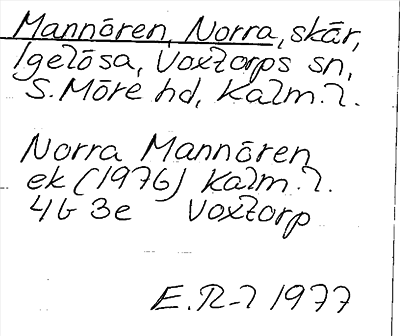 Mannören, Norra, skär,
Igelösa, Voxtorps sn,
S. Möre hd, Kalm. l.
Norra Mannören
ek (1976) Kalm. l.
4G 3e Voxtorp
E.R-l 1977